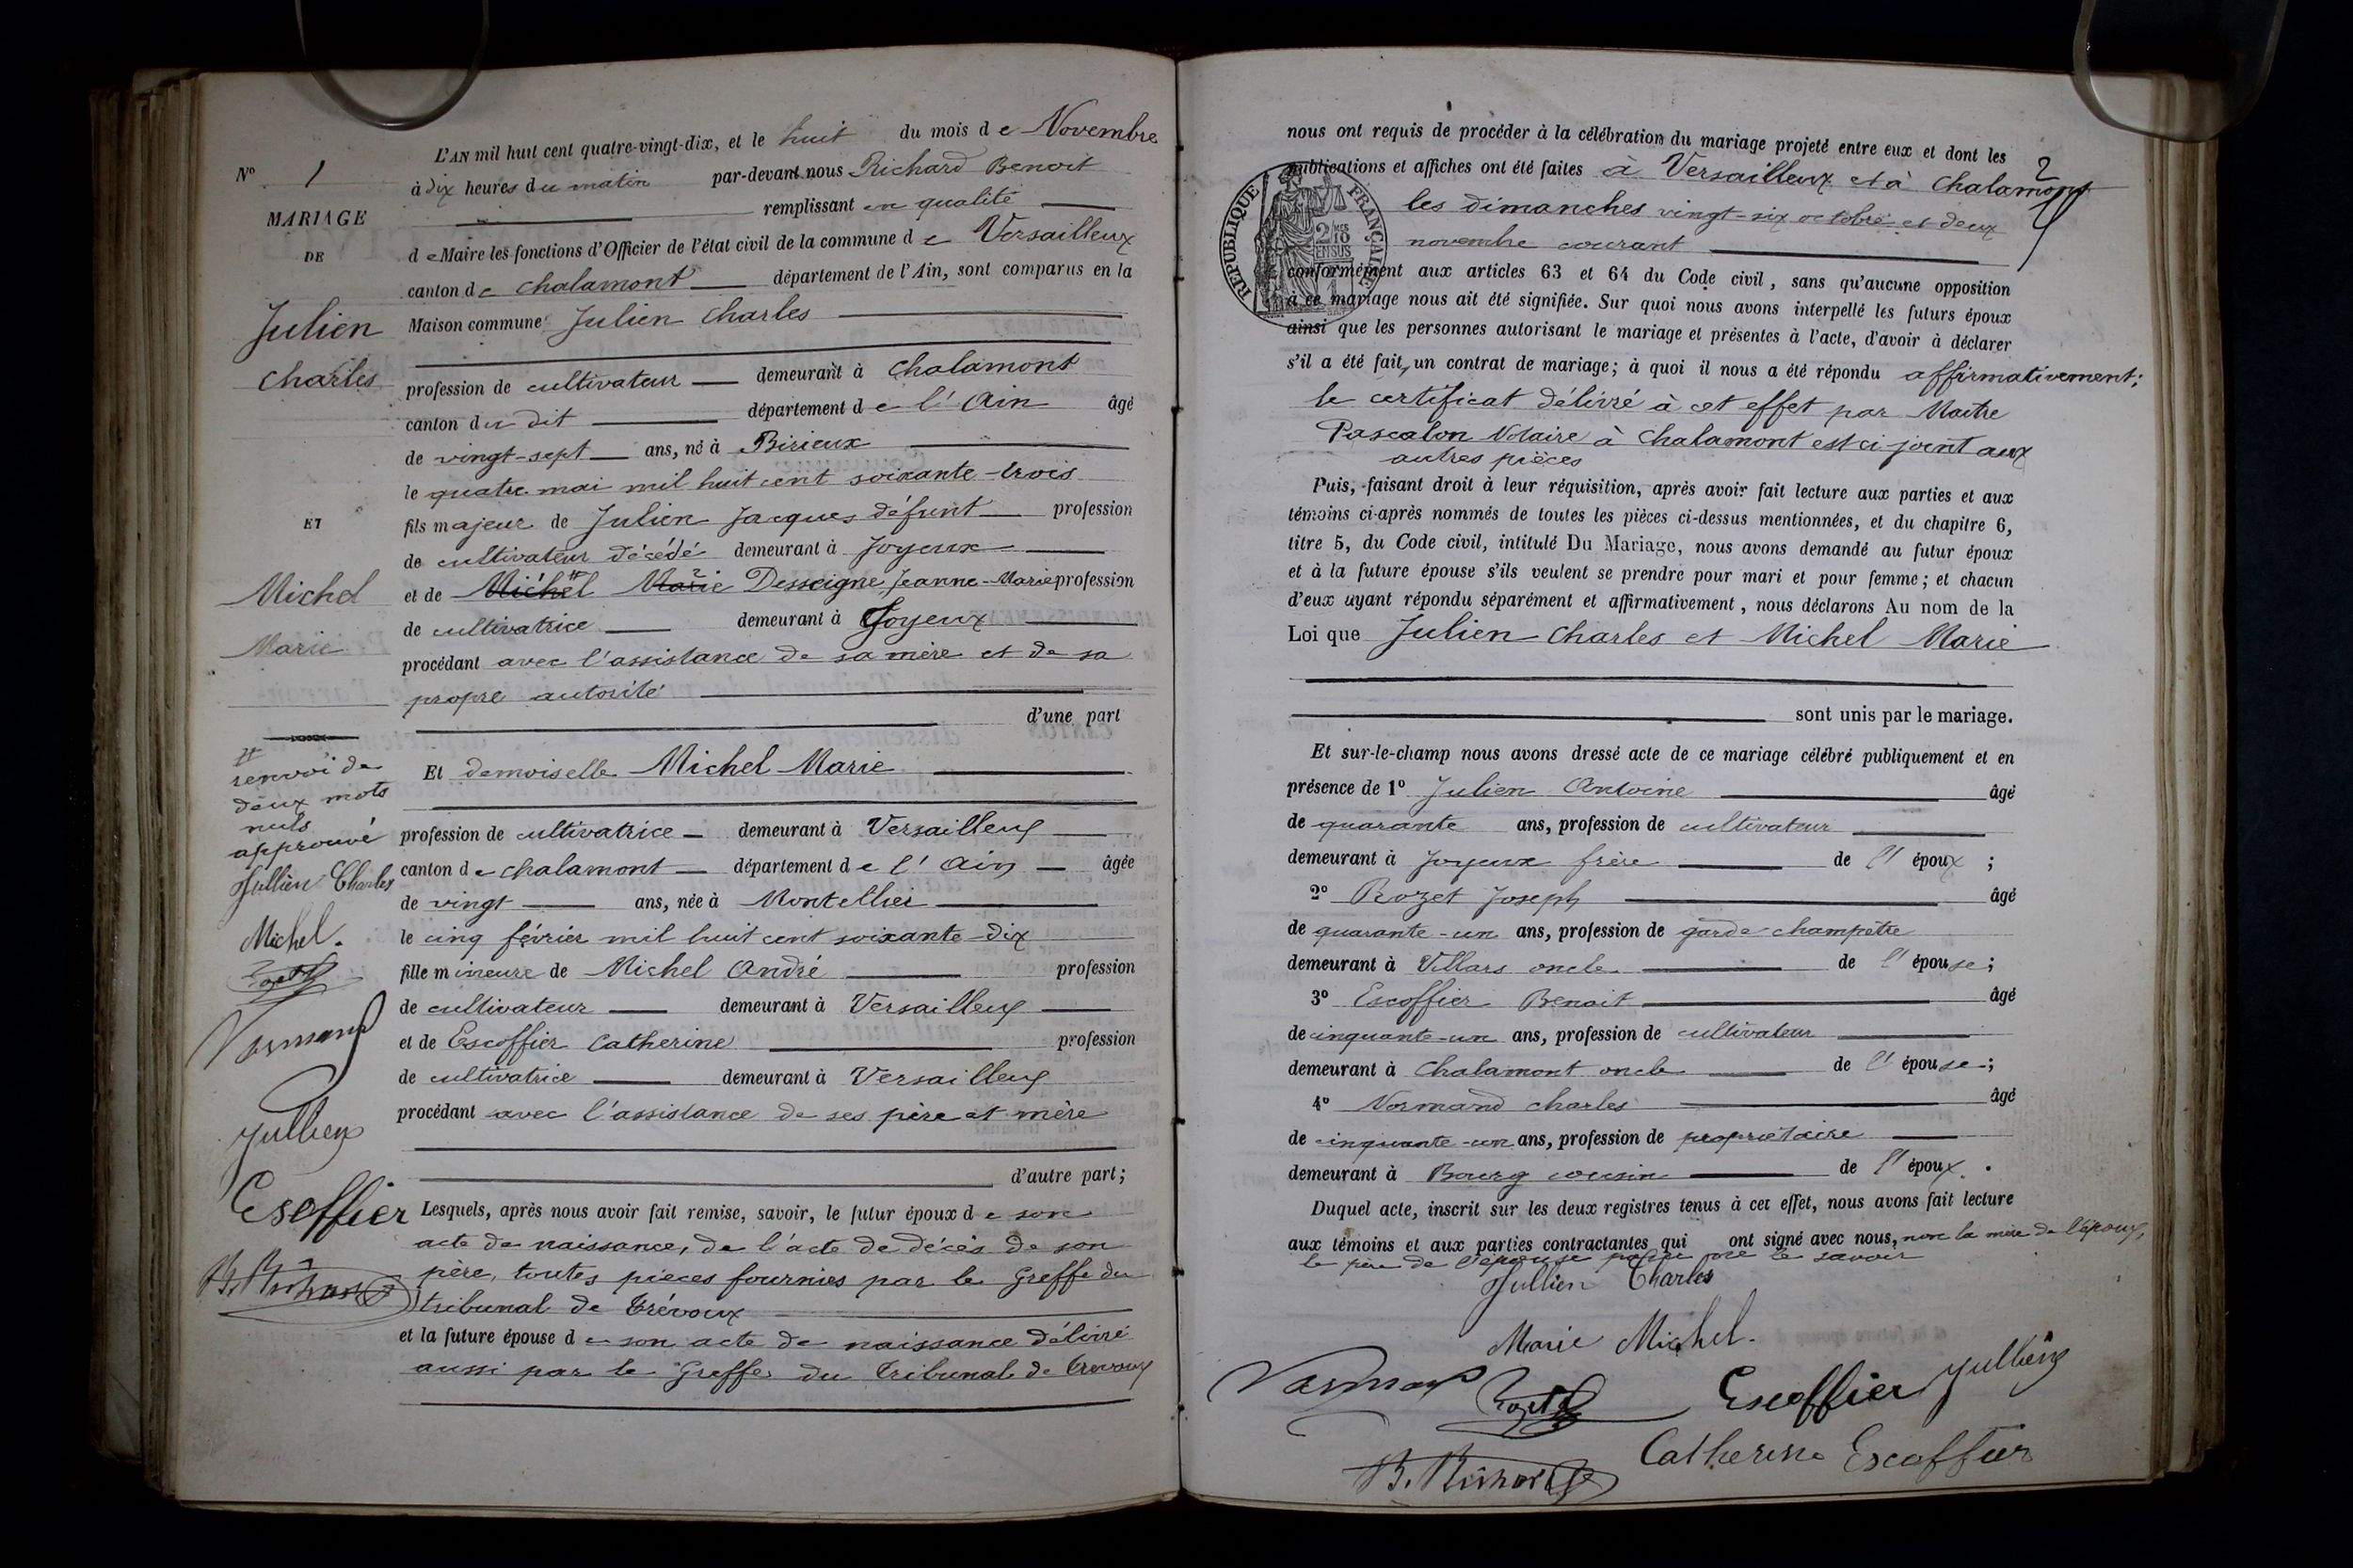 L'AN mil huit cent quatre-vingt-dix, et le huit du mois de Novembre
à dix heures du matin par-devant nous Richard Benoit
remplissant en qualité
de Maire les fonctions d'Officier de l'état civil de la commune de Versailleux
canton de Chalamont département de l'Ain, sont comparus en la
Maison commune Julien Charles
profession de cultivateur demeurant à Chalamont
canton du dit département de l'Ain âgé
de vingt-sept ans, né à Birieux
le quatre mai mil huit cent soixante-trois
fils majeur de Julien Jacques défunt profession
de cultivateur décédé demeurant à Joyeux
et de Michel Marie Desseigne Jeanne-Marie profession
de cultivatrice demeurant à Joyeux
procédant avec l'assistance de sa mère et de sa
propre autorité
d'une part
Et demoiselle Michel Marie
profession de cultivatrice demeurant à Versailleux
canton de Chalamont département de l'Ain âgée
de vingt ans, née à Montellier
le cinq février mil huit cent soixante-dix
fille mineure de Michel André profession
de cultivateur demeurant à Versailleux
et de Escoffier Catherine profession
de cultivatrice demeurant à Versailleux
procédant avec l'assistance de ses père et mère
d'autre part;
Lesquels, après nous avoir fait remise, savoir, le futur époux de son
acte de naissance, de l'acte de décès de son
père, toutes pièces fournies par le Greffe du
tribunal de Trévoux
et la future épouse de son acte de naissance délivré
aussi par le Greffe du Tribunal de Trevoux
No 1
MARIAGE
DE
Julien
Charles
ET
Michel
Marie
renvoi de
deux mots
nuls
approuvé
Jullien Charles
Michel.
Rozet
Normand
Jullien
Escoffier
B. Richard
2
nous ont requis de procéder à la célébration du mariage projeté entre eux et dont les
publications et affiches ont été faites à Versailleux et à Chalamont
les dimanches vingt-six octobre et deux
novembre courant
conformément aux articles 63 et 64 du Code civil, sans qu'aucune opposition
à ce mariage nous ait été signifiée. Sur quoi nous avons interpellé les futurs époux
ainsi que les personnes autorisant le mariage et présentes à l'acte, d'avoir à déclarer
s'il a été fait, un contrat de mariage; à quoi il nous a été répondu affirmativement;
le certificat délivré à cet effet par Maître
Pascalon Notaire à Chalamont est ci-joint aux
autres pièces
Puis, faisant droit à leur réquisition, après avoir fait lecture aux parties et aux
témoins ci-après nommés de toutes les pièces ci-dessus mentionnées, et du chapitre 6,
titre 5, du Code civil, intitulé Du Mariage, nous avons demandé au futur époux
et à la future épouse s'ils veulent se prendre pour mari et pour femme; et chacun
d'eux ayant répondu séparément et affirmativement, nous déclarons Au nom de la
Loi que Julien Charles et Michel Marie
sont unis par le mariage.
Et sur-le-champ nous avons dressé acte de ce mariage célébré publiquement et en
présence de 1º Julien Antoine âgé
de quarante ans, profession de cultivateur
demeurant à Joyeux frère de l'époux;
2º Rozet Joseph âgé
de quarante-un ans, profession de garde-champêtre
demeurant à Villars oncle de l'épouse;
3º Escoffier Benoit âgé
de cinquante-un ans, profession de cultivateur
demeurant à Chalamont oncle de l'épouse;
4º Normand Charles âgé
de cinquante-un ans, profession de propriétaire
demeurant à Bourg cousin de l'époux.
Duquel acte, inscrit sur les deux registres tenus à cet effet, nous avons fait lecture
aux témoins et aux parties contractantes qui ont signé avec nous, non la mère de l'époux,
le père de l'épouse pour ne le savoir
Jullien Charles
Marie Michel.
Normand Rozet Escoffier Jullien
B. Richard Catherine Escoffier
RÉPUBLIQUE FRANÇAISE
2/10
EN SUS